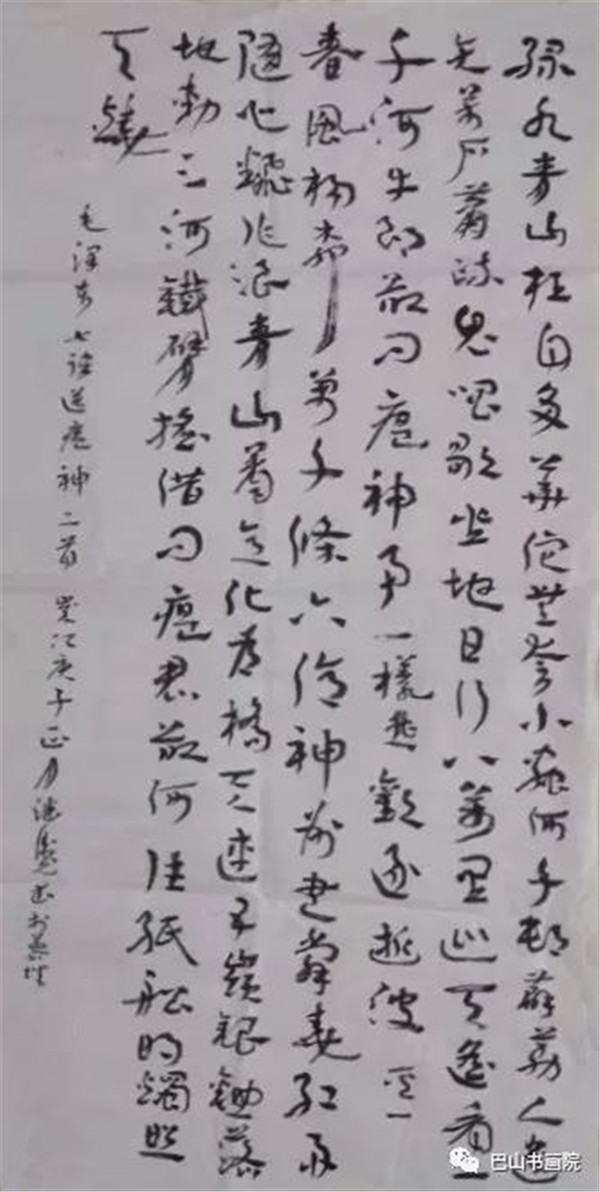 绿水青山枉自多華佗無奈小蟲何千村薜荔人遗
矢萬户蕭疏鬼唱歌坐地日行八萬里巡天遥看一
千河牛郎欲问瘟神事一樣悲歡逐逝波 其一
春風楊柳萬千條六億神州尽舜堯红雨
随心翻作浪青山着意化为橋天连五嶺銀鋤落
地动三河鐵臂摇借问瘟君欲何往紙船明燭照
天燒
毛泽东七律送瘟神二首 岁次庚子正月 书於
巴山书画院